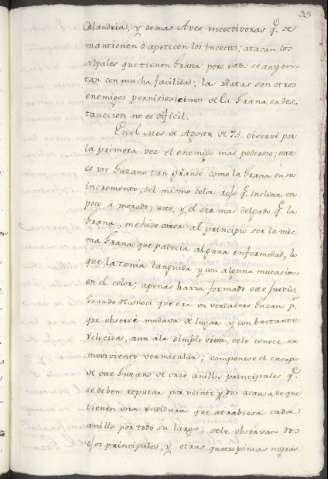 39
Calandria), y demas Aves insectivoras q.e se
mantienen ò apetecen los Insectos, atacan los
Nopales que tienen Grana, pues esta se
tan con mucha facilidad; las Ratas son otros
enemigos perniciosisimos de la Grana, su des-
truccion no es dificil.
En el Mes de Agosto de observé por
la primera vez el enemigo mas poderoso; este
es un Gusano tan grande como la Grana en su
incremento, del mismo color rojo q.e inclina un
poco a morado; este, y el ser mas delgado q.e la
Grana, me hizo creer al principio ser la mis-
ma Grana que padecia alguna enfermedad, lo
que la tenia languida y con alguna mutacion
en el color; apenas havia formado este juicio
quando que era un verdadero Gusano p.r
que observé mudava de lugar y con bastante
velocidad, aun a la simple vista, se le conoce un
movimiento vermicular; componese el cuerpo
de este Gusano de anillos principales q.e
se deben reputar por veinte y dos a causa de que
tienen una que atrabiesa cada
anillo por todo su largo, se le observan dos
ojos principales, y otras quatro